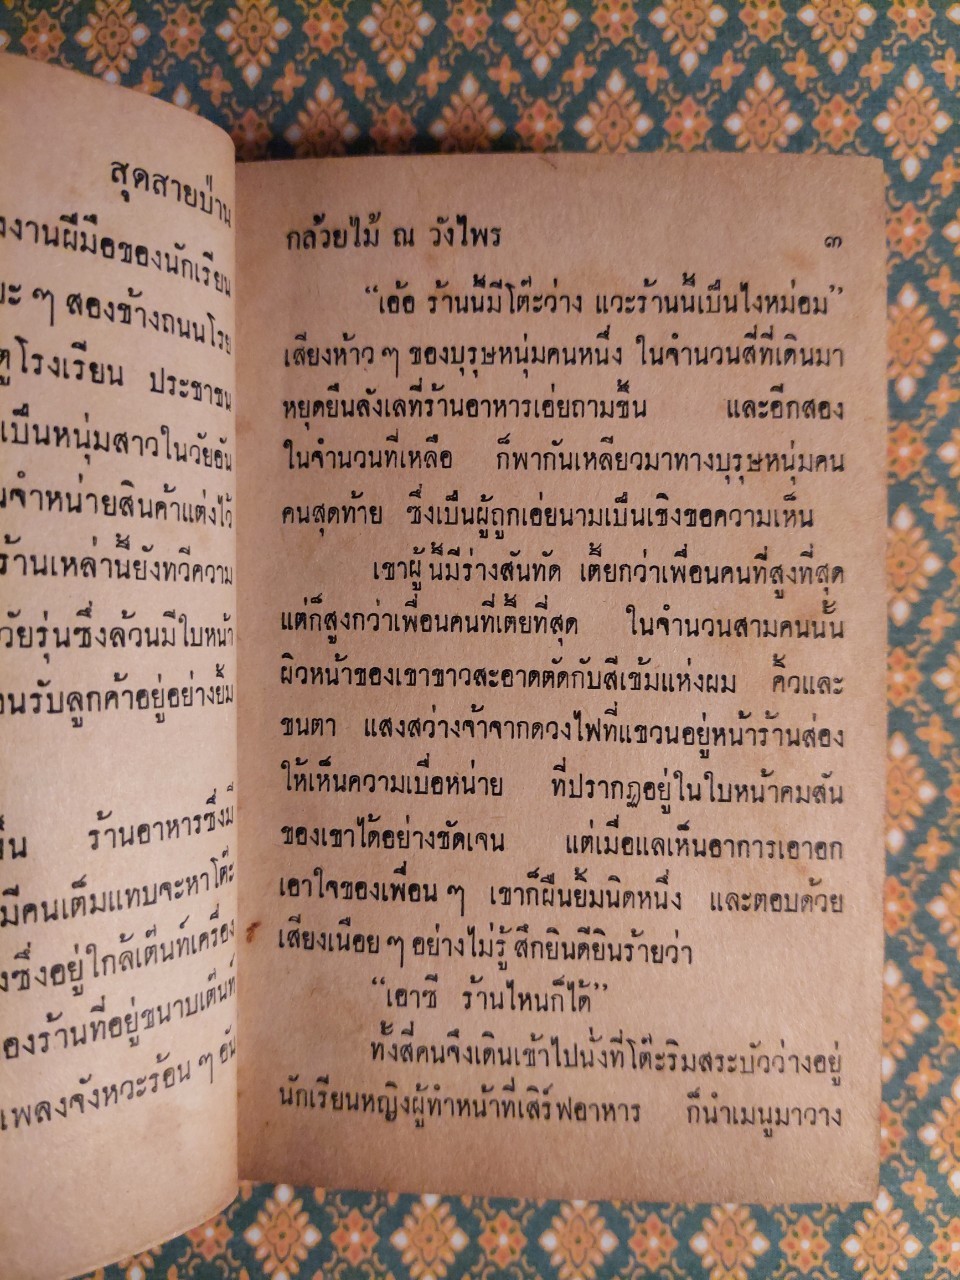 สุดสายป่าน
งานฝีมือของนักเรียน
ๆ สองข้างถนนโรย
โรงเรียน ประชาชน
เป็นหนุ่มสาวในวัยอัน
จำหน่ายสินค้าแต่งไว้
ร้านเหล่านี้ยังทวีความ
วัยรุ่นซึ่งล้วนมีใบหน้า
รับลูกค้าอยู่อย่างยิ้ม
ร้านอาหารซึ่งมี
มีคนเต็มแทบจะหาโต๊ะ
ซึ่งอยู่ใกล้เต็นท์เครื่อง
ร้านที่อยู่ขนาบเต็นท์
เพลงจังหวะร้อน ๆ อัน
กล้วยไม้ ณ วังไพร ๓
“เอ้อ ร้านนี้มีโต๊ะว่าง แวะร้านนี้เป็นไงหม่อม”
เสียงห้าว ๆ ของบุรุษหนุ่มคนหนึ่ง ในจำนวนสี่ที่เดินมา
หยุดยืนลังเลที่ร้านอาหารเอ่ยถามขึ้น และอีกสอง
ในจำนวนที่เหลือ ก็พากันเหลียวมาทางบุรุษหนุ่มคน
คนสุดท้าย ซึ่งเป็นผู้ถูกเอ่ยนามเป็นเชิงขอความเห็น
เขาผู้นี้มีร่างสันทัด เตี้ยกว่าเพื่อนคนที่สูงที่สุด
แต่ก็สูงกว่าเพื่อนคนที่เตี้ยที่สุด ในจำนวนสามคนนั้น
ผิวหน้าของเขาขาวสะอาดตัดกับสีเข้มแห่งผม คิ้วและ
ขนตา แสงสว่างจ้าจากดวงไฟที่แขวนอยู่หน้าร้านส่อง
ให้เห็นความเบื่อหน่าย ที่ปรากฏอยู่ในใบหน้าคมสัน
ของเขาได้อย่างชัดเจน แต่เมื่อแลเห็นอาการเอาอก
เอาใจของเพื่อน ๆ เขาก็ฝืนยิ้มนิดหนึ่ง และตอบด้วย
เสียงเนือย ๆ อย่างไม่รู้สึกยินดียินร้ายว่า
“เอาซี ร้านไหนก็ได้”
ทั้งสี่คนจึงเดินเข้าไปนั่งที่โต๊ะริมสระบัวว่างอยู่
นักเรียนหญิงผู้ทำหน้าที่เสิร์ฟอาหาร ก็นำเมนูมาวาง